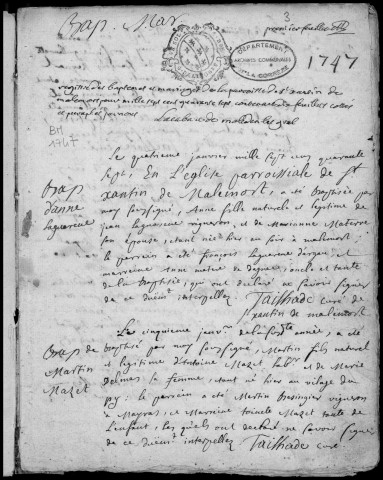 Bap. Mar
3
premier feuillet
DEPARTEMENT
ARCHIVES COMMUNALES
DE LA CORREZE
1747
registre des baptemes et mariages de la parroisse de st xantin de
malemort pour mille sept cens quarante sept, contenant feuillets cottés
et paraphés par nous
BM
1747
Le quatrieme janvier mille sept cens quarante
sept, En L'eglise parroissiale de st
xantin de Malemort, a eté baptisée
par moy soussigné, Anne fille naturele et legitime de
jean Laguerenne vigneron, et de Marianne Materre
son epouse, etant née hier au soir à malemort:
le parrein a eté françois Laguerenne
marreine Anne oncle et tante
de la Baptisée, qui ont declaré ne savoir signer
de ce duem.t interpellez Tailhade curé de
xantin de malemort
bap
d'anne
Le cinquieme janv.r de la susd.te année, a eté
baptisé par moy soussigné, Martin fils naturel
et legitime d'Antoine Mazet lab.r et de Marie
Delmas sa femme, etant né hier au village du
puy: le parrein a eté Martin vigneron
à Mayras, et Marreine Toinete Mazet tante de
l'enfant, les quels ont declaré ne savoir signer
de ce duem.t interpellez Tailhade curé
Bap de
Martin
Mazet